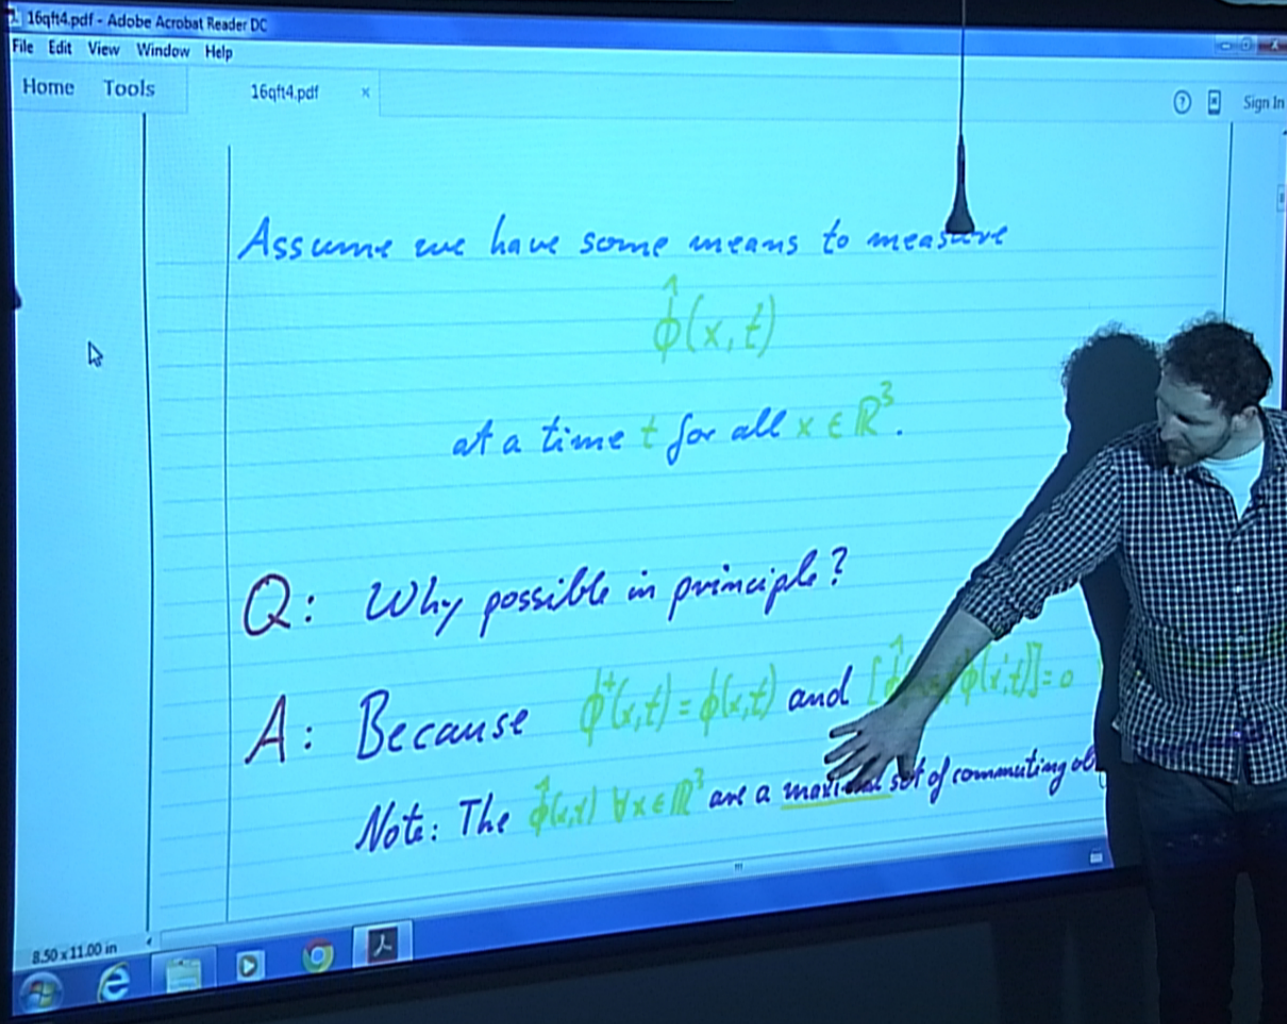 16qft4.pdf - Adobe Acrobat Reader DC
File Edit View Window Help
Home Tools 16qft4.pdf × ? Sign In
Assume we have some means to measure
φ̂(x,t)
at a time t for all x ∈ ℝ³.
Q: Why possible in principle?
A: Because φ̂⁺(x,t) = φ̂(x,t) and [φ̂ φ̂(x',t)] = 0
Note: The φ̂(x,t) ∀ x ∈ ℝ³ are a maximal set of commuting
8.50 x 11.00 in